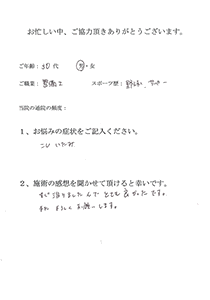 お忙しい中、ご協力頂きありがとうございます。
ご年齢：30代 男・女
ご職業：整備工 スポーツ歴：野球、サッカー
当院の通院の頻度：
1、お悩みの症状をご記入ください。
こし いたみ
2、施術の感想を聞かせて頂けると幸いです。
すぐ治りましたんで とても良かったです。
またよろしくお願いします。